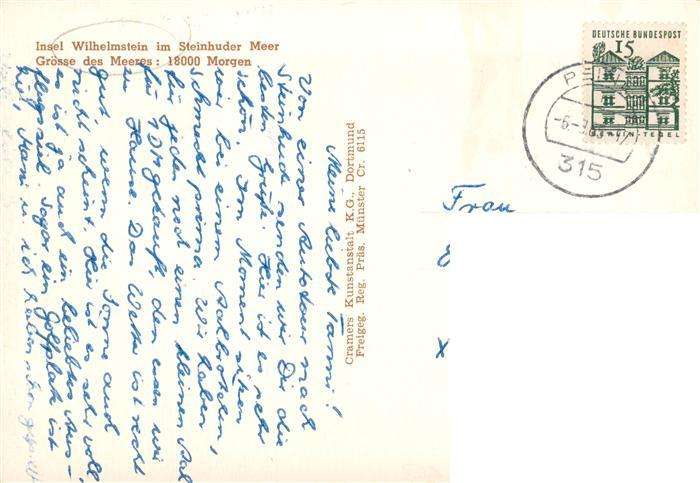 Insel Wilhelmstein im Steinhuder Meer
Grösse des Meeres: 18000 Morgen
Meine liebste Tammi!
Von einer Autotour nach
Steinhude senden wir Dir die
besten Grüße. Hier ist es sehr
schön. Im Moment sitzen
wir bei einem Aalbrötchen,
schmeckt prima. Wir haben
für jeden noch einen kleinen Aal
für 1 DM gekauft, den essen wir
zu Hause. Das Wetter ist recht
gut, wenn die Sonne auch
nicht scheint. Hier ist es sehr voll,
es ist ja auch ein beliebtes Aus-
flugsziel. Sogar ein Golfplatz ist
hier, u. ich haben schon
Cramers Kunstanstalt K.G., Dortmund
Freigeg. Reg. Präs. Münster Cr. 6115
DEUTSCHE BUNDESPOST
15
BERLIN-TEGEL
315
Frau